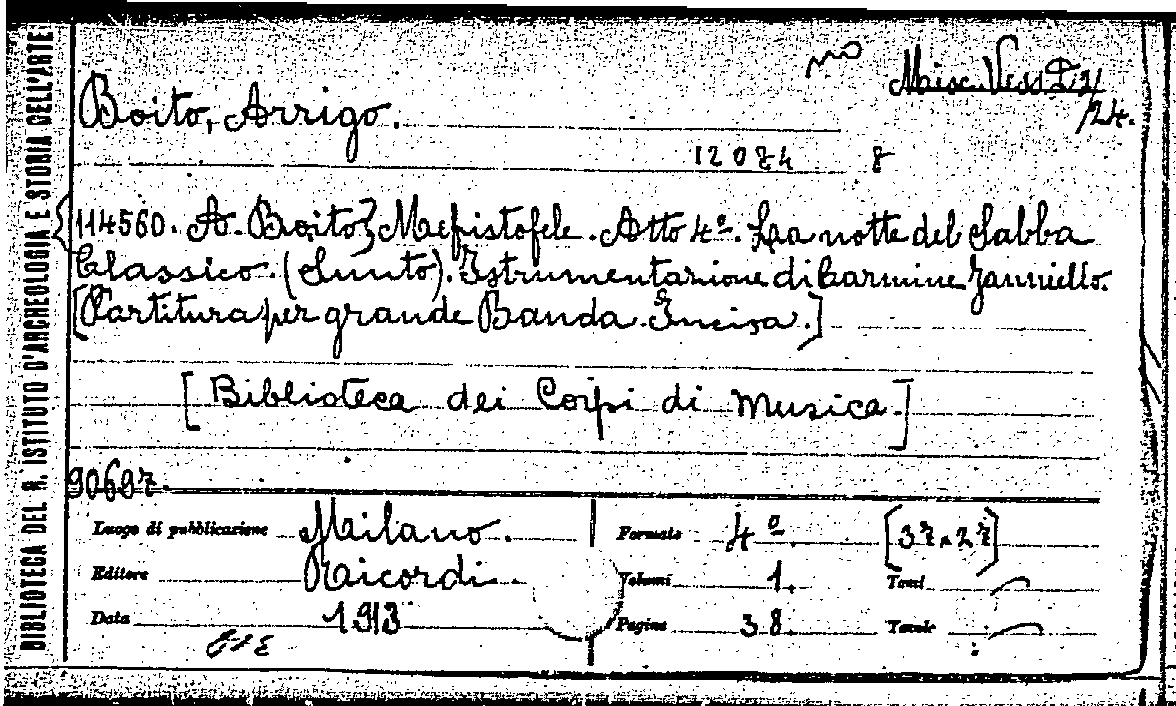 BIBLIOTECA DEL R. ISTITUTO D'ARCHEOLOGIA E STORIA DELL'ARTE
Misc. Vess I 2/
/24.
Boito, Arrigo.
8
114560. A. Boito} Mefistofele. Atto 4º. La notte del Sabba
Classico. (Sunto). Istrumentazione di Carmine Janniello.
[Partitura per grande Banda. Incisa.]
[Biblioteca dei Corpi di Musica.]
90697
Luogo di pubblicazione Milano. Formato 4º. [37x27]
Editore Ricordi. Volumi 1. Tomi
Data 1913 Pagine 38. Tavole